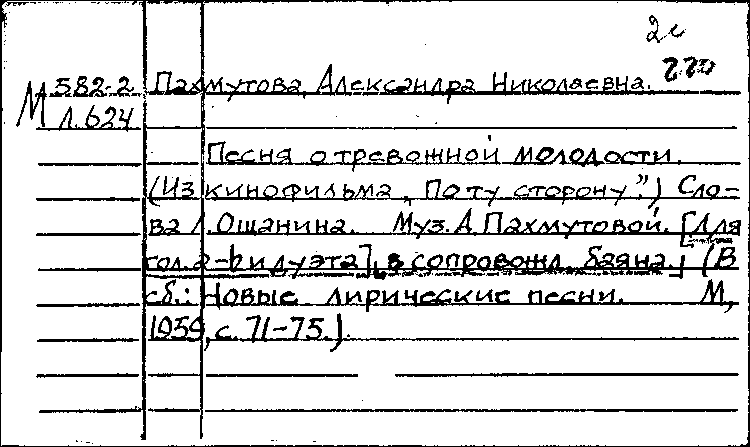 2с
220
М 582-2 Пахмутова, Александра Николаевна.
Л.624
Песня о тревожной молодости.
(Из кинофильма „По ту сторону".) Сло-
ва Л. Ошанина. Муз. А. Пахмутовой. [Для
гол. a-b и дуэта], в сопровожд. баяна.] (В
сб.: Новые лирические песни. М,
1959, с. 71-75.).